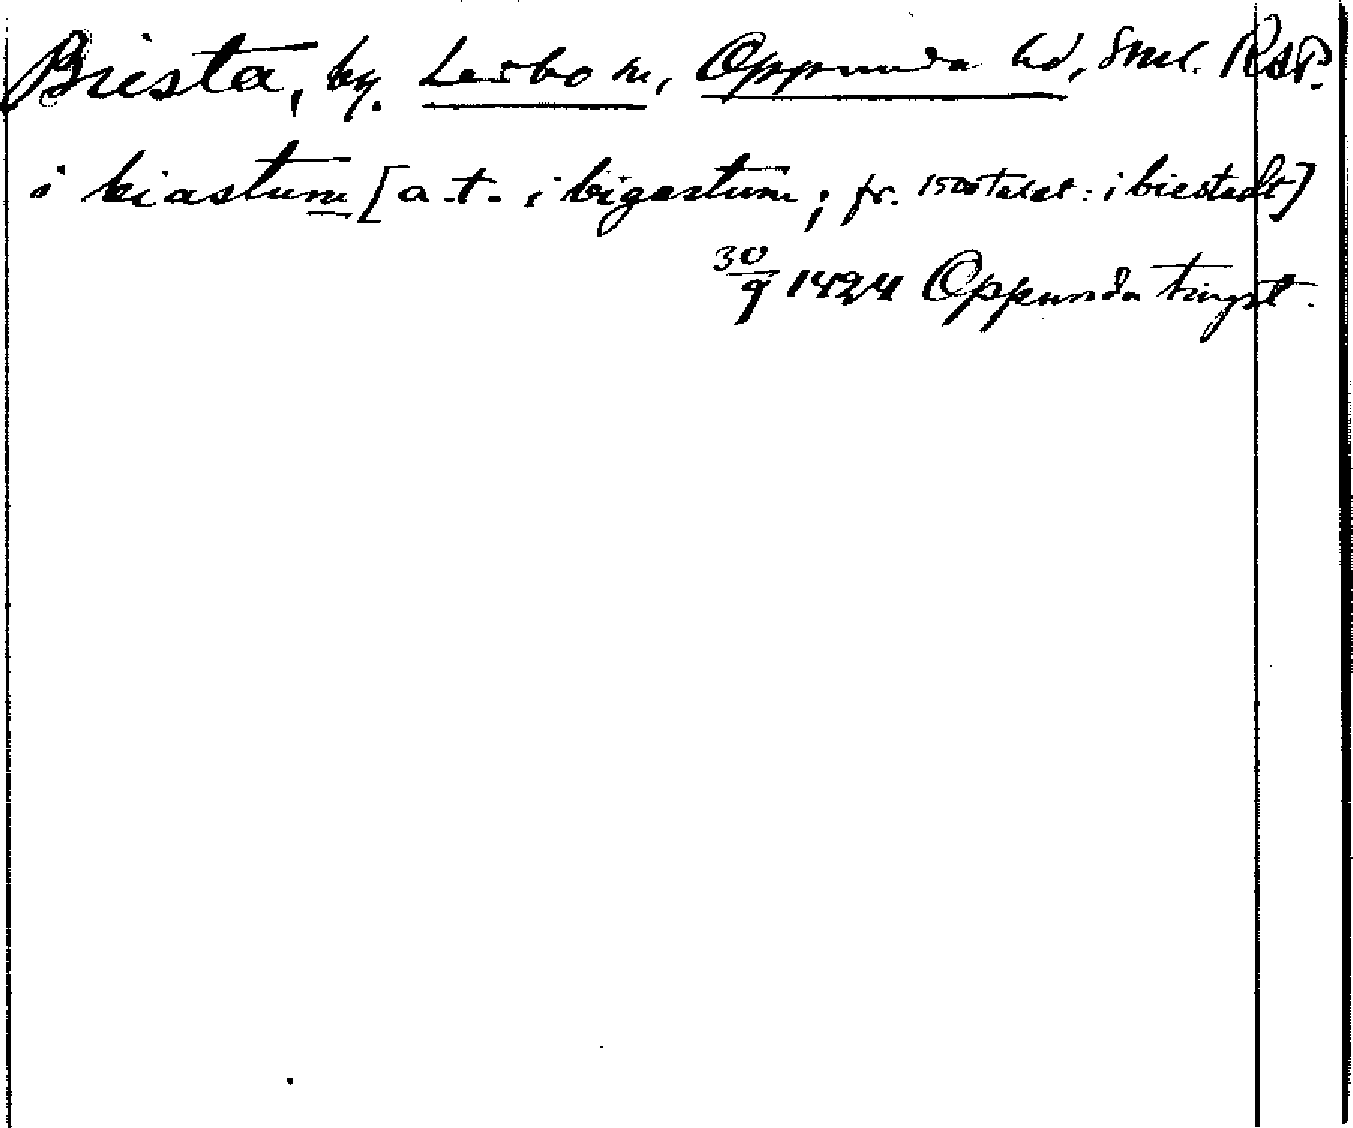 Biesta, by. Lerbo sn, Oppunda hd, Sml. RAP.
i biastum [a-t. i bigestum; fr. 1500 talet: i biestedt]
30/9 1424 Oppunda tingst.